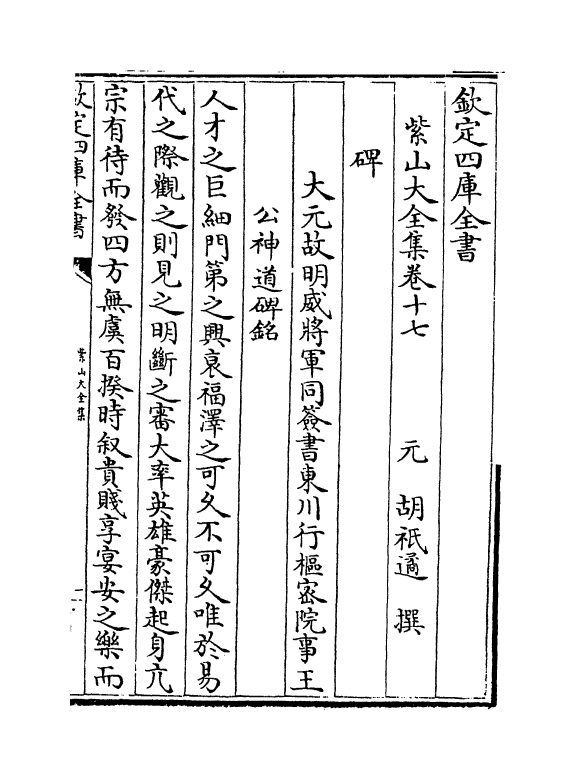 欽定四庫全書
紫山大全集卷十七
元　胡祗遹　撰
碑
大元故明威將軍同簽書東川行樞宻院事王
公神道碑銘
人才之巨細門第之興衰福澤之可久不可久唯於易
代之際觀之則見之明斷之審大率英雄豪傑起身亢
宗有待而發四方無虞百揆時叙貴賤享宴安之樂而
欽定四庫全書
紫山大全集